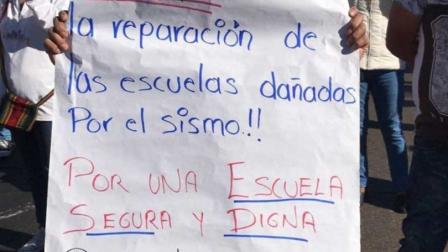 la reparación de
las escuelas dañadas
Por el sismo!!
POR UNA ESCUELA
SEGURA Y DIGNA